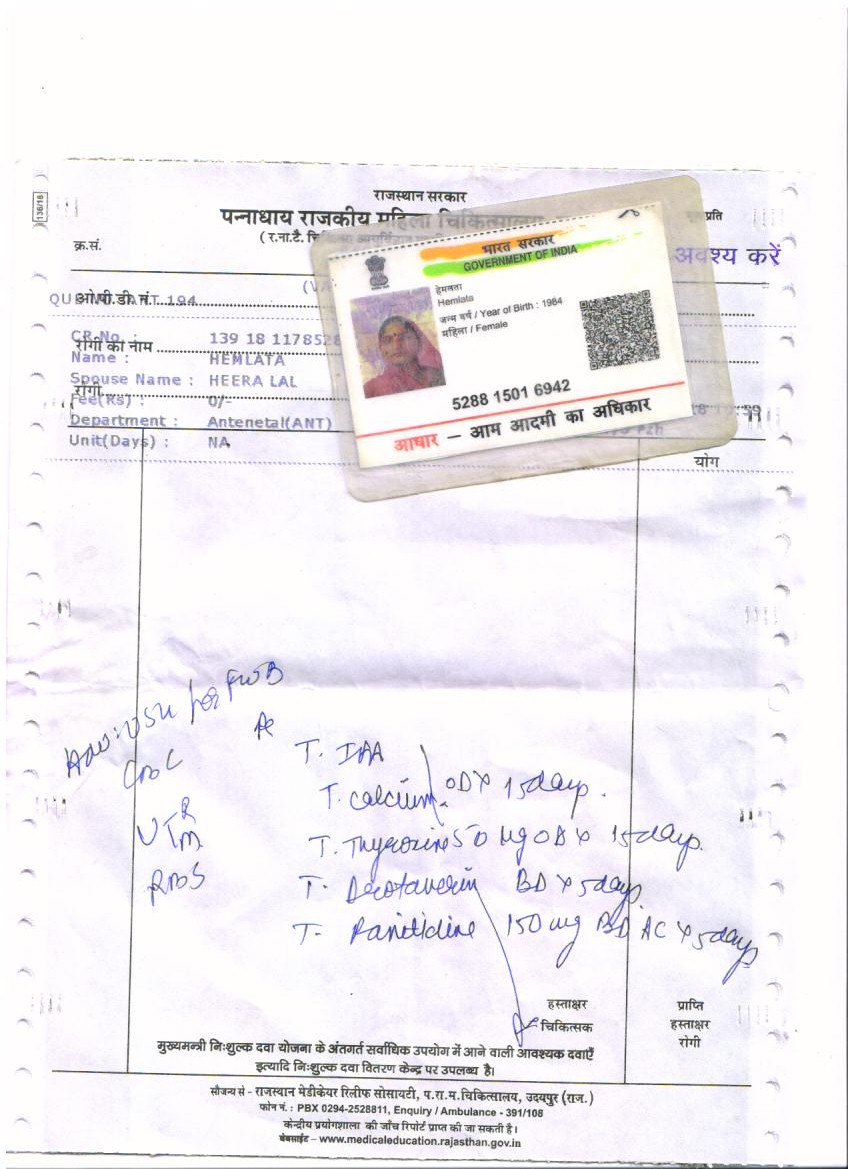 राजस्थान सरकार
पन्नाधाय राजकीय महिला चिकित्सालय
( र.ना.टै.
प्रति
136/16
क्र.सं.
अवश्य करें
ओ.पी.डी.नं.
194
CR-No. : 139 18 117852
रोगी का नाम
Name : HEMLATA
Spouse Name : HEERA LAL
रोगी
Fee(Rs) : 0/-
Department : Antenetal(ANT)
Unit(Days) : NA
योग
भारत सरकार
GOVERNMENT OF INDIA
हेमलता
Hemlata
जन्म वर्ष / Year of Birth : 1984
महिला / Female
5288 1501 6942
आधार – आम आदमी का अधिकार
Adv: USG for FWB
CBC
RBS
T. Calcium OD x 15 days.
T. Thyroxine 50 µg OD x 15 days.
T. Drotaverin BD x 5 days
T- Ranitidine 150 mg BD AC x 5 days
हस्ताक्षर
चिकित्सक
प्राप्ति
हस्ताक्षर
रोगी
मुख्यमन्त्री निःशुल्क दवा योजना के अंतगर्त सर्वाधिक उपयोग में आने वाली आवश्यक दवाएँ
इत्यादि निःशुल्क दवा वितरण केन्द्र पर उपलब्ध है।
सौजन्य सं - राजस्थान मेडीकेयर रिलीफ सोसायटी, प.रा.म.चिकित्सालय, उदयपुर (राज.)
फोन नं. : PBX 0294-2528811, Enquiry / Ambulance - 391/108
केन्द्रीय प्रयोगशाला की जाँच रिपोर्ट प्राप्त की जा सकती है।
बेबसाईट – www.medicaleducation.rajasthan.gov.in